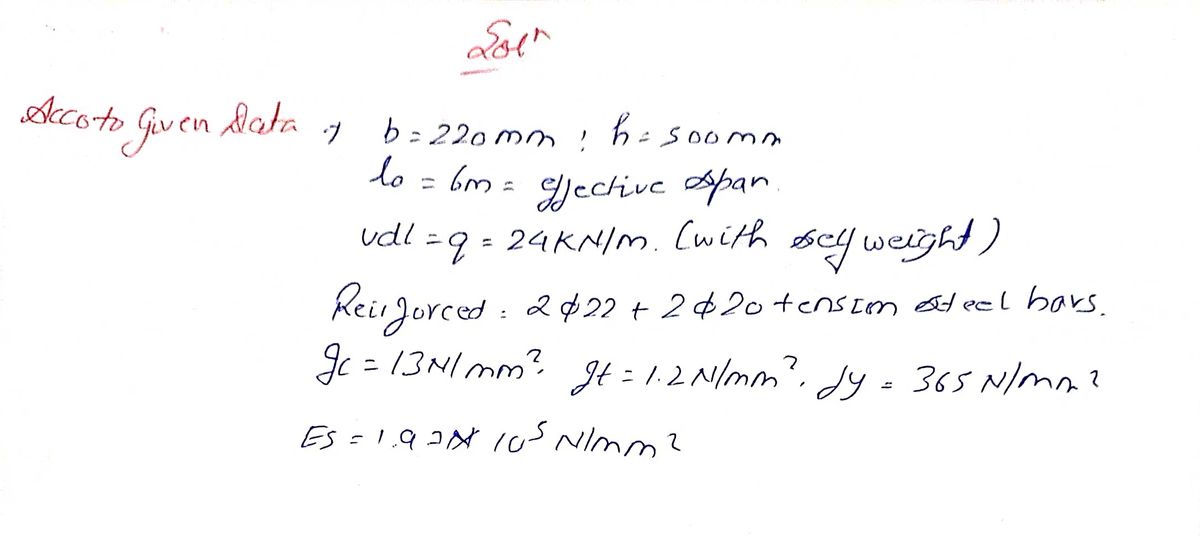 Soln
Acco to Given Data → b = 220 mm ; h = 500 mm
lo = 6m = effective span.
udl = q = 24 KN/m. (with self weight)
Reinforced : 2 ϕ 22 + 2 ϕ 20 tension steel bars.
fc = 13 N/mm². ft = 1.2 N/mm². fy = 365 N/mm²
Es = 1.9 × 10⁵ N/mm²